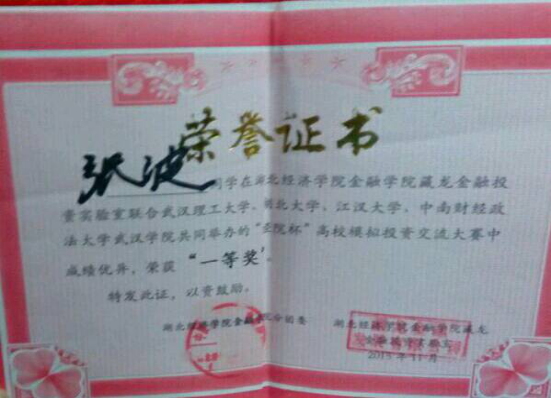 荣誉证书
张波
同学在湖北经济学院金融学院藏龙金融投
资实验室联合武汉理工大学、湖北大学、江汉大学、中南财经政
法大学武汉学院共同举办的“金院杯”高校模拟投资交流大赛中
成绩优异，荣获“一等奖”。
特发此证，以资鼓励。
湖北经济学院金融学院分团委 湖北经济学院金融学院藏龙
金融投资实验室